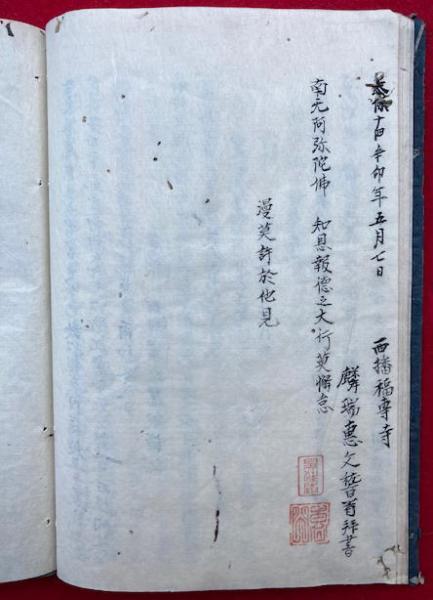 辛卯年五月七日　西播福專寺
麟瑞惠文稽首拜書
南无阿弥陀佛　知恩報德之大行莫懈怠
漫莫許於他見